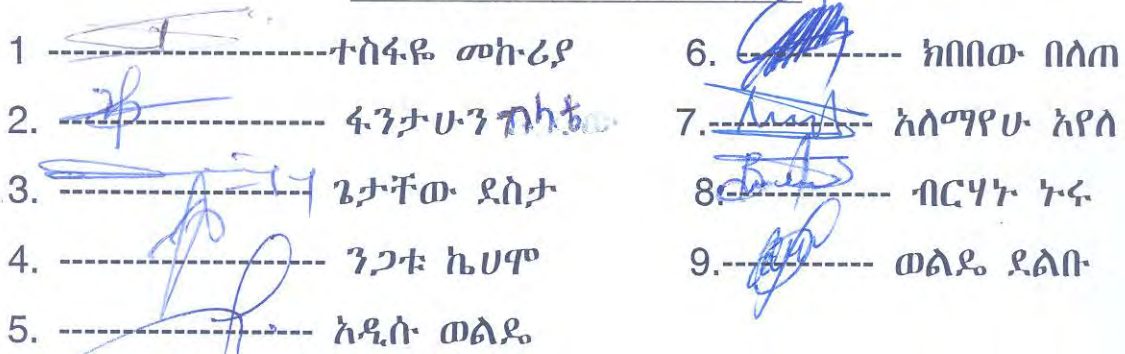 1 ---------------------- ተስፋዬ መኩሪያ
2. --------------------- ፋንታሁን
3. --------------------- ጌታቸው ደስታ
4. --------------------- ንጋቱ ኬሀሞ
5. --------------------- አዲሱ ወልዴ
6. ------------- ክበበው በለጠ
7. ------------- አለማየሁ አየለ
8. ------------- ብርሃኑ ኑሩ
9. ------------- ወልዴ ደልቡ